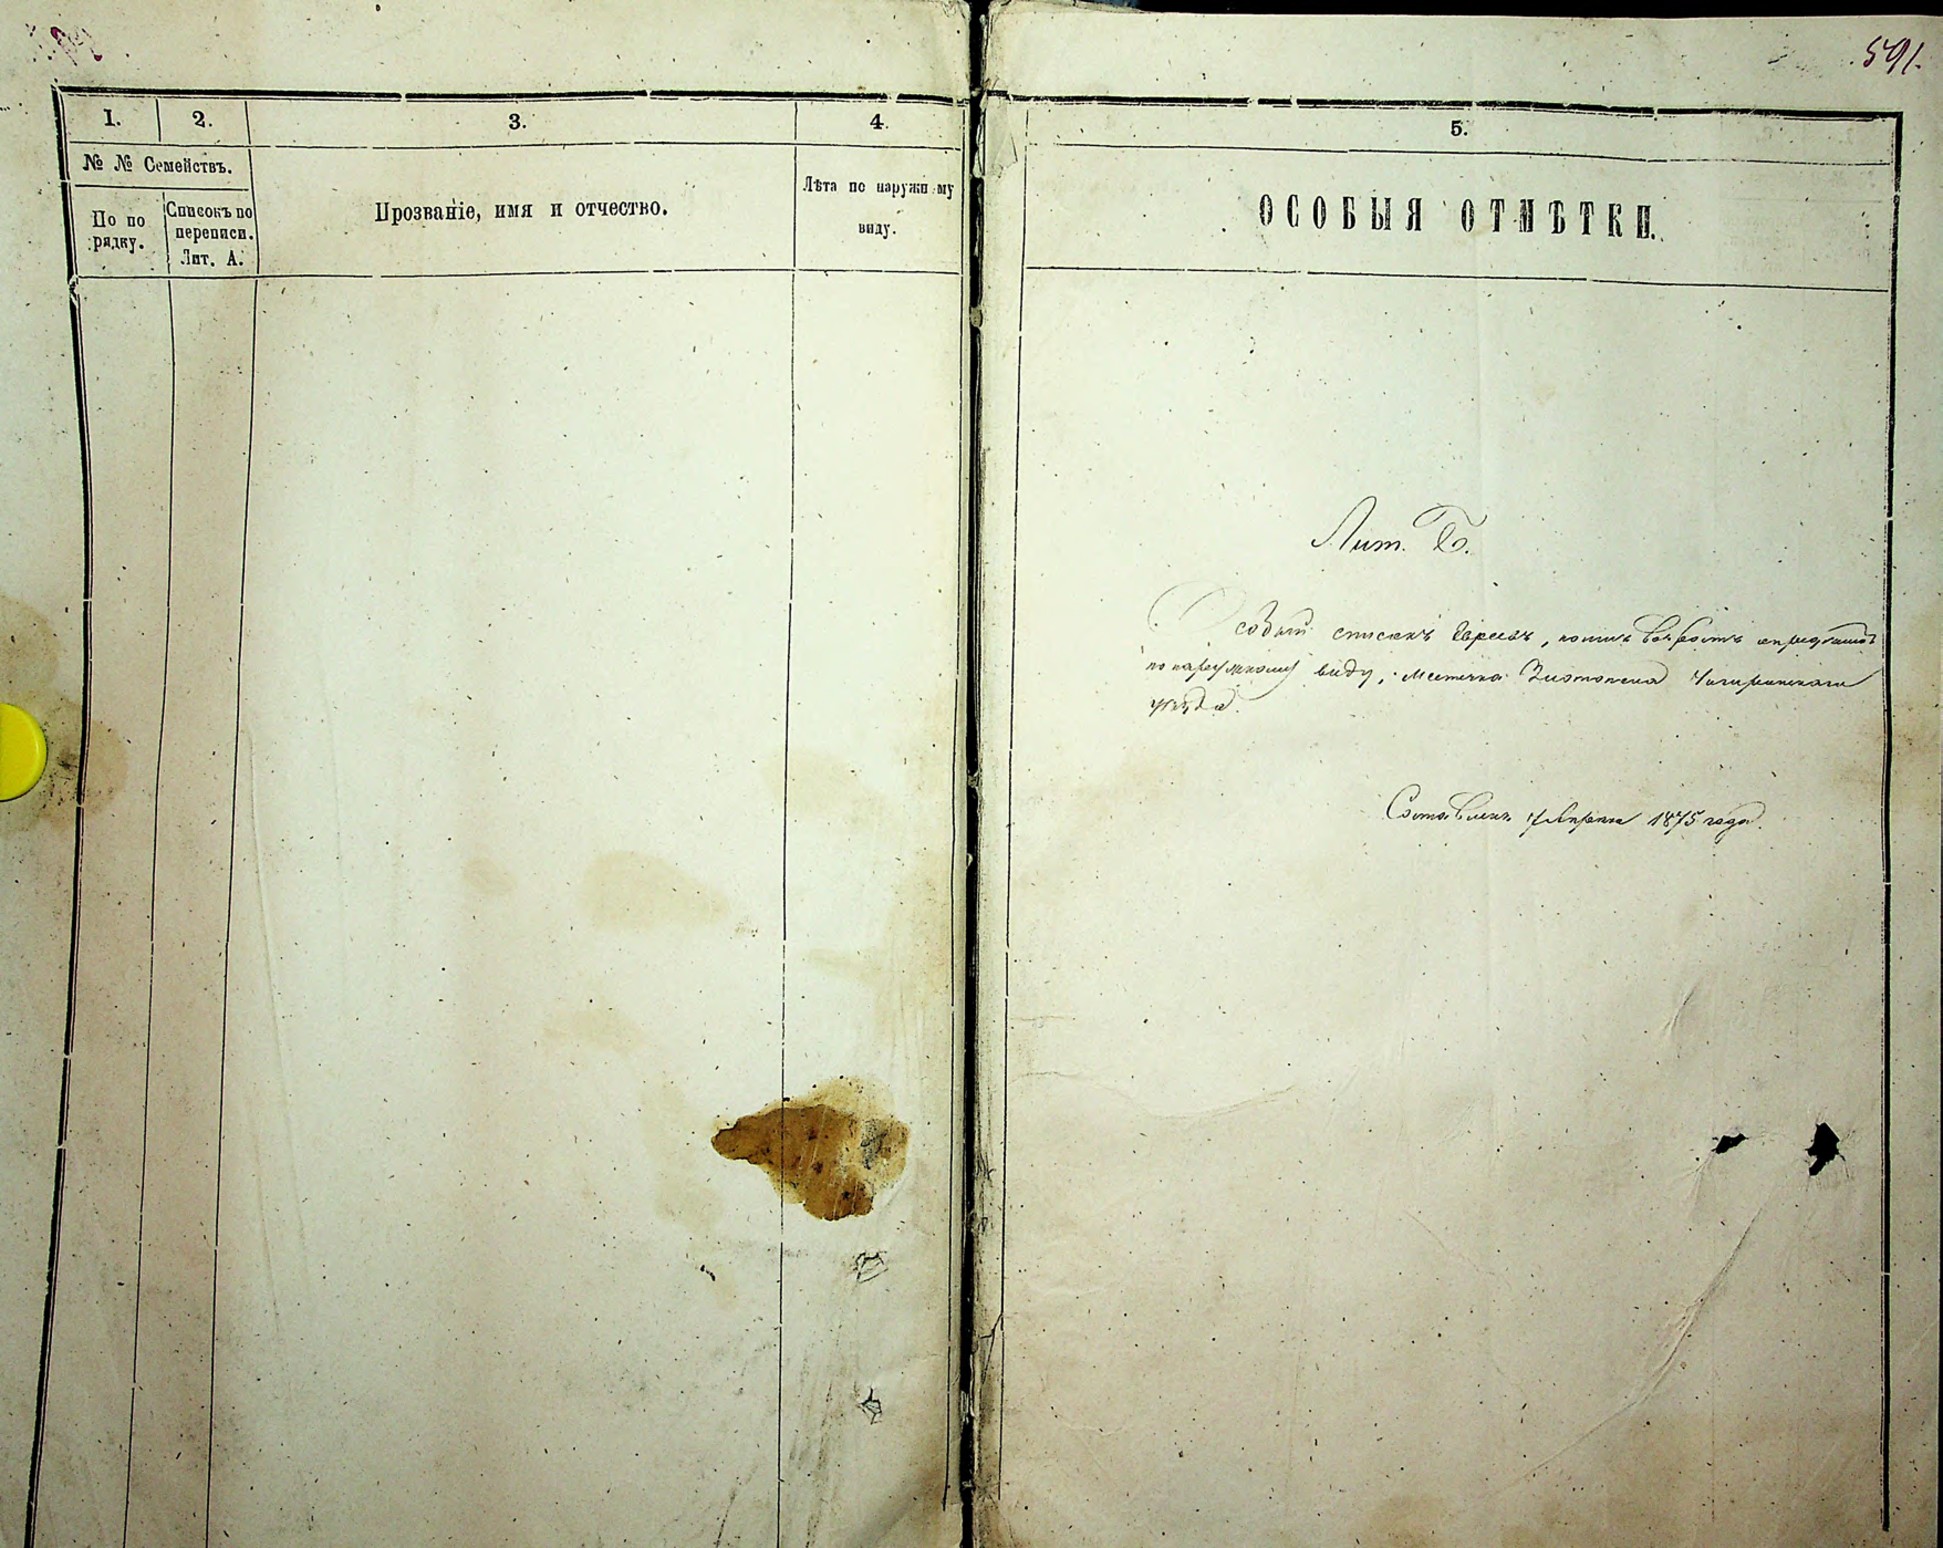 591.
1. 2. 3. 4. 5.
№ № Семействъ.
По по
рядку.
Списокъ по
переписи.
Лит. А.
Прозваніе, имя и отчество.
Лѣта по наружному
виду.
ОСОБЫЯ ОТМѢТКИ.
Лит. Б.
Особый списокъ Евреевъ, коихъ возрастъ опредѣленъ
по наружному виду, мѣстечка Златополя Чигиринскаго
уѣзда.
Составленъ Апрѣля 1875 года.